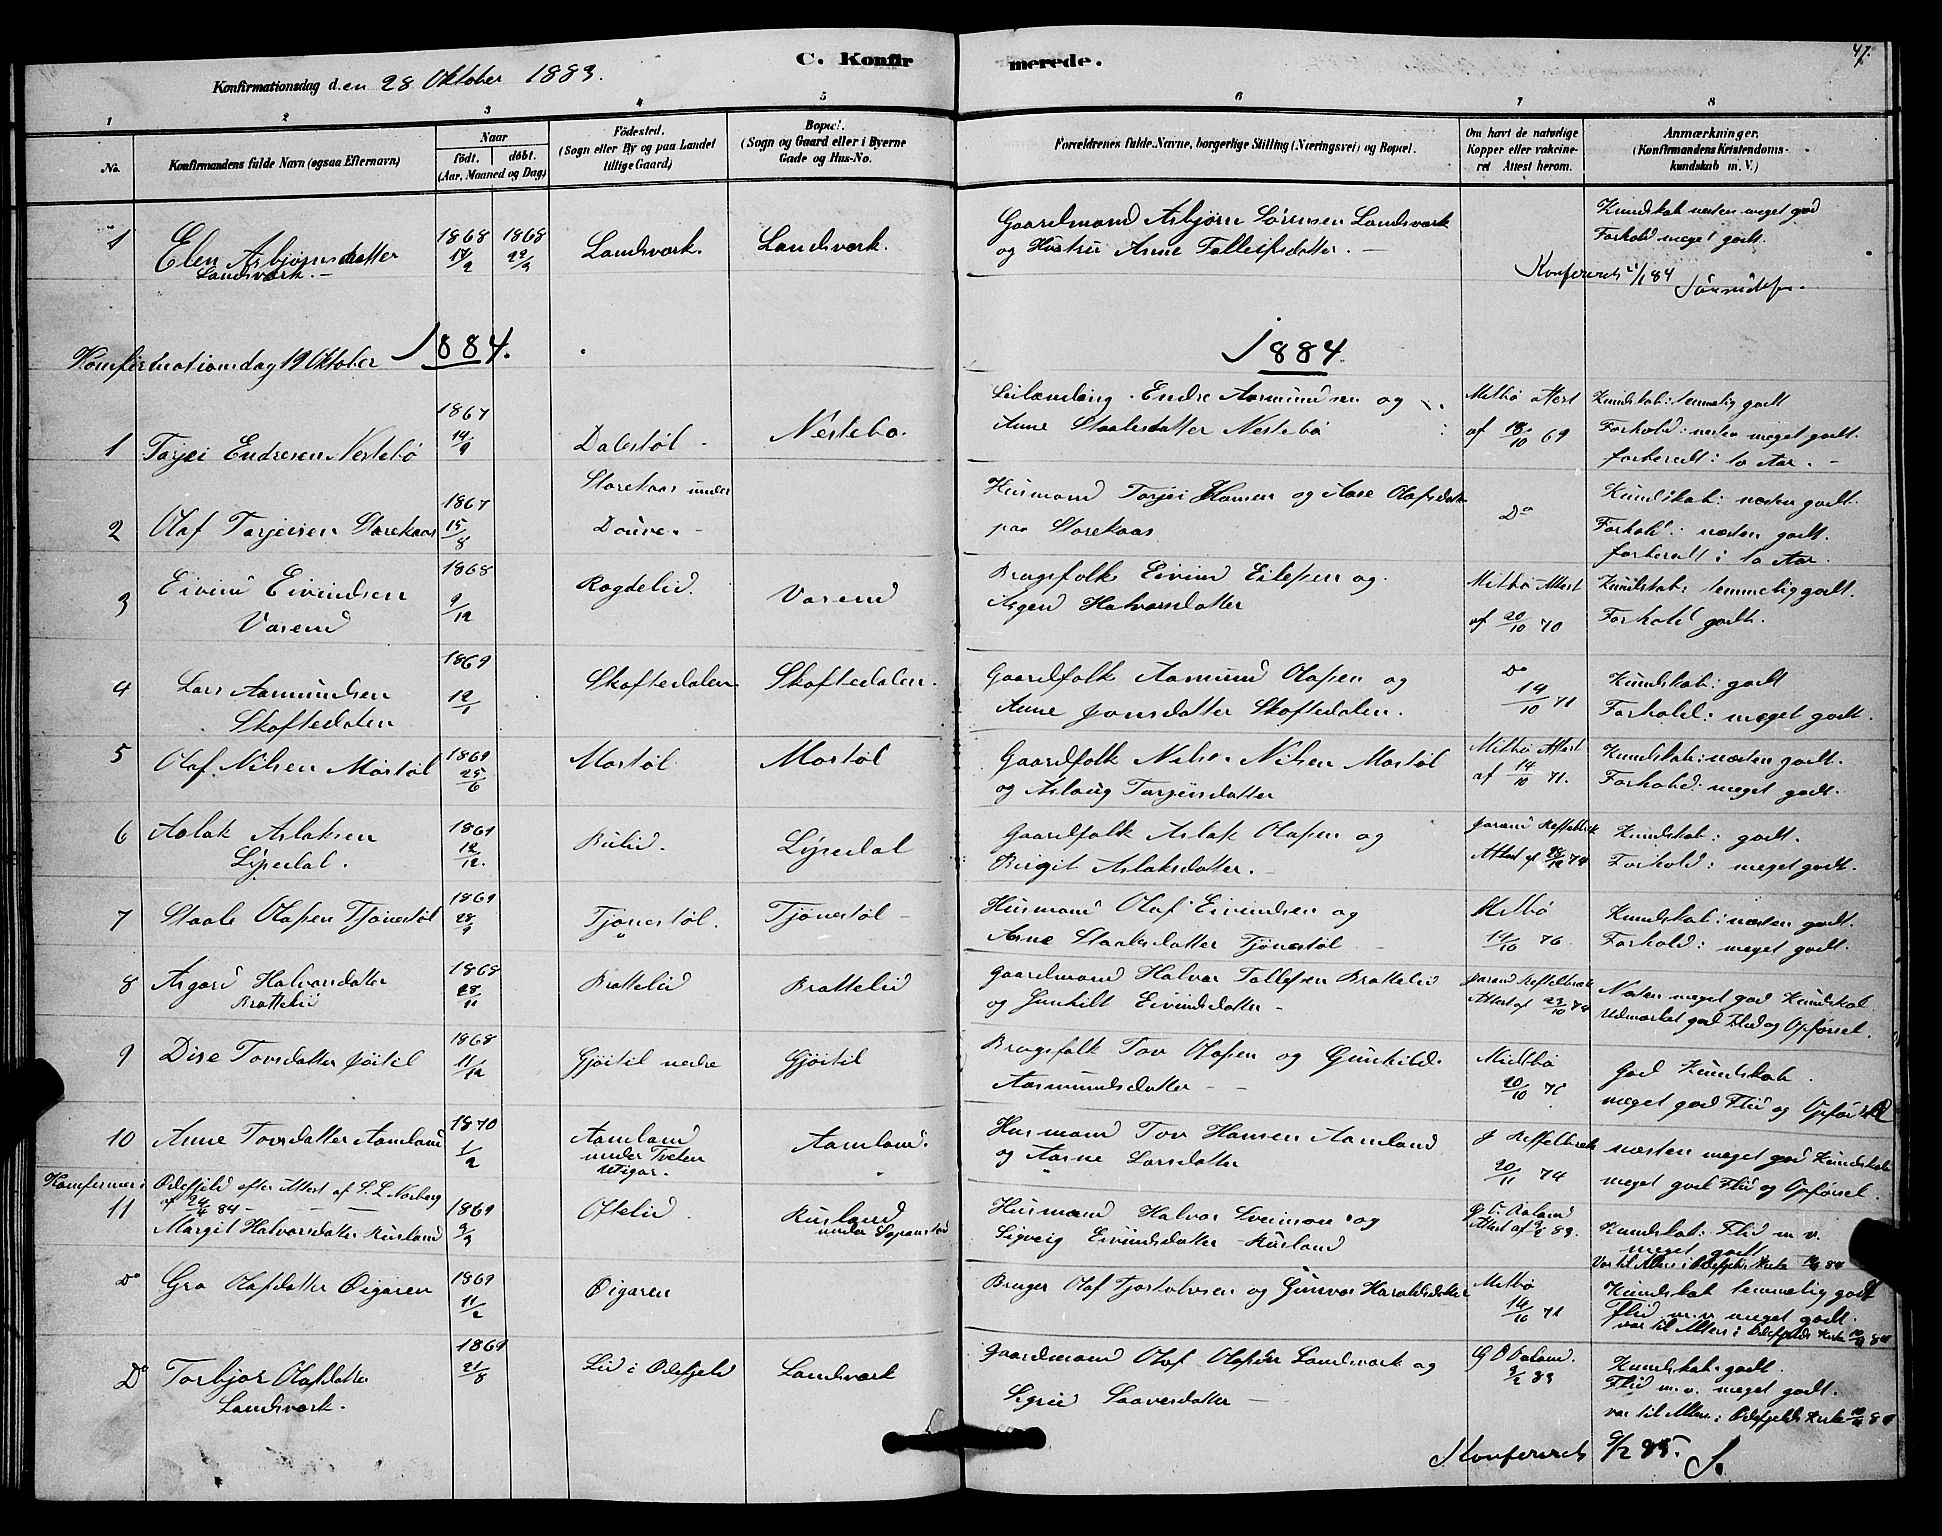 47.
C. Konfirmerede.
Konfirmationsdag d.en 28 Oktober 1883.
1 2 3 4 5 6 7 8
No.
Konfirmandens fulde Navn (ogsaa Efternavn)
Naar
födt. döbt.
(Aar, Maaned og Dag)
Födested.
(Sogn eller By og paa Landet
tillige Gaard)
Bopæl.
(Sogn og Gaard eller i Byerne
Gade og Hus-No.
Forældrenes fulde Navne, borgerlige Stilling (Næringsvei) og Bopæl.
Om havt de naturlige
Kopper eller vakcine-
ret Attest herom.
Anmærkninger.
(Konfirmandens Kristendoms-
kundskab m. V.)
1 Elen Asbjørnsdatter
Landsværk. -
1868 17/2 1868 22/3
Landsværk.
Landsværk.
Gaardmand Asbjørn Sørensen Landsværk
og Hustru Anne Tallefsdatter. -
Kundskab næsten meget god
Forhold meget godt.
Konfereret 1/1 84
Konfirmationsdag 19 Oktober 1884.
1884.
1 Tarjei Endresen Nestebø
1867 14/9
Dalestøl -
Nestebø.
Leilænding Endre Aasmundsen og
Anne Staalesdatter Nestebø
Mitbø Attest
af 18/10 69
Kundskab: temmelig godt
Forhold: nesten meget godt.
forberedt i to Aar. -
2 Olaf Tarjeisen Storekaas
1867 15/8
Storekaas under
Dauve. -
Husmand Tarjei Hansen og Aase Olafsdatter
paa Storekaas
Do
Kundskab: næsten godt.
Forhold: næsten godt.
forberedt i to Aar.
3 Eivind Eivindsen
Varend
1868 9/12
Rogdelid.
Varend
Brugsfolk Eivind Eilefsen og
Asgerd Halvorsdatter
Mitbø Attest
af 20/10 70
Kundskab: temmelig godt.
Forhold godt.
4 Lars Aamundsen
Skoftedalen
1869 12/1
Skoftedalen
Skoftedalen.
Gaardfolk Aamund Olafsen og
Anne Jonsdatter Skoftedalen.
Do
14/10 71
Kundskab: godt
Forhold: meget godt.
5 Olaf Nilsen Mostøl
1869 25/6
Mostøl
Mostøl
Gaardfolk Nils Nilsen Mostøl
og Aslaug Tarjeisdatter
Mitbø Attest
af 14/10 71.
Kundskab: næsten godt.
Forhold: meget godt.
6 Aslak Aslaksen
Lipedal.
1869 12/12.
Bulid.
Lipedal
Gaardfolk Aslak Olafsen og
Birgit Aslaksdatter. -
Attest af 28/12 74
Kundskab: godt.
Forhold: meget godt.
7 Staale Olafsen Tjønestøl
1869 28/9
Tjønestøl.
Tjønestøl -
Husmand Olaf Eivindsen og
Anne Staalesdatter Tjønestøl
Mitbø
14/10 76.
Kundskab: næsten godt.
Forhold: meget godt.
8 Asgerd Halvorsdatter
Brattelid
1868 28/11
Brattelid
Brattelid
Gaardmand Halvor Tallefsen Brattelid
og Gunhilt Eivindsdatter -
Næsten meget god Kundskab
udmærket god Flid og Opførsel.
9 Dise Torsdatter Jøitil
1868 11/12
Gjøitil nedre
Gjøitil
Brugsfolk Tov Olafsen og Gunhild
Aasmundsdatter - -
Midtbø
20/10 70
God Kundskab.
meget god Flid og Opførsel
10 Anne Tovsdatter Aamland
1870 1/2
Aamland
under Tveten
Uigar.
Aamland.
Husmand Tov Hansen Aamland
og Aasne Larsdatter
20/11 74
næsten meget god Kundskab
meget god Flid og Opførsel.
Konfirmeret i Ødefjeld efter Attest af S. L. Norberg
af 24/4 84 - - -
11 Margit Halvorsdatter Rusland
1869 9/9
Oftelid
Rusland
Husmand Halvor Sveinson og
Sigveig Eivindsdatter Rusland
Attest af 9/2 83.
Kundskab: Flid m. v.
meget godt
Var til Alters i Ødefjelds Kirke
Do Gro Olafsdatter Øigaren
1869 11/2
Øigaren
Bruger Olaf Tjostolvsen og Gunvor Haraldsdatter
Mitbø
14/10 71
Kundskab temmelig godt
Flid m. v. meget godt.
var til Alters i Ødefjelds Kirke 10/8 84
Do Torbjør Olafsdatter
Landsværk.
1869 21/8
Lid i Ødefjeld
Landsværk
Gaardmand Olaf Olafsen Landsværk og
Sigrid Saavesdatter -
9/2 83
Kundskab: godt.
Flid m. v. meget godt.
var til Alters i Ødefjelds Kirke 10/8 84
Konfereret 6/2 85. S.